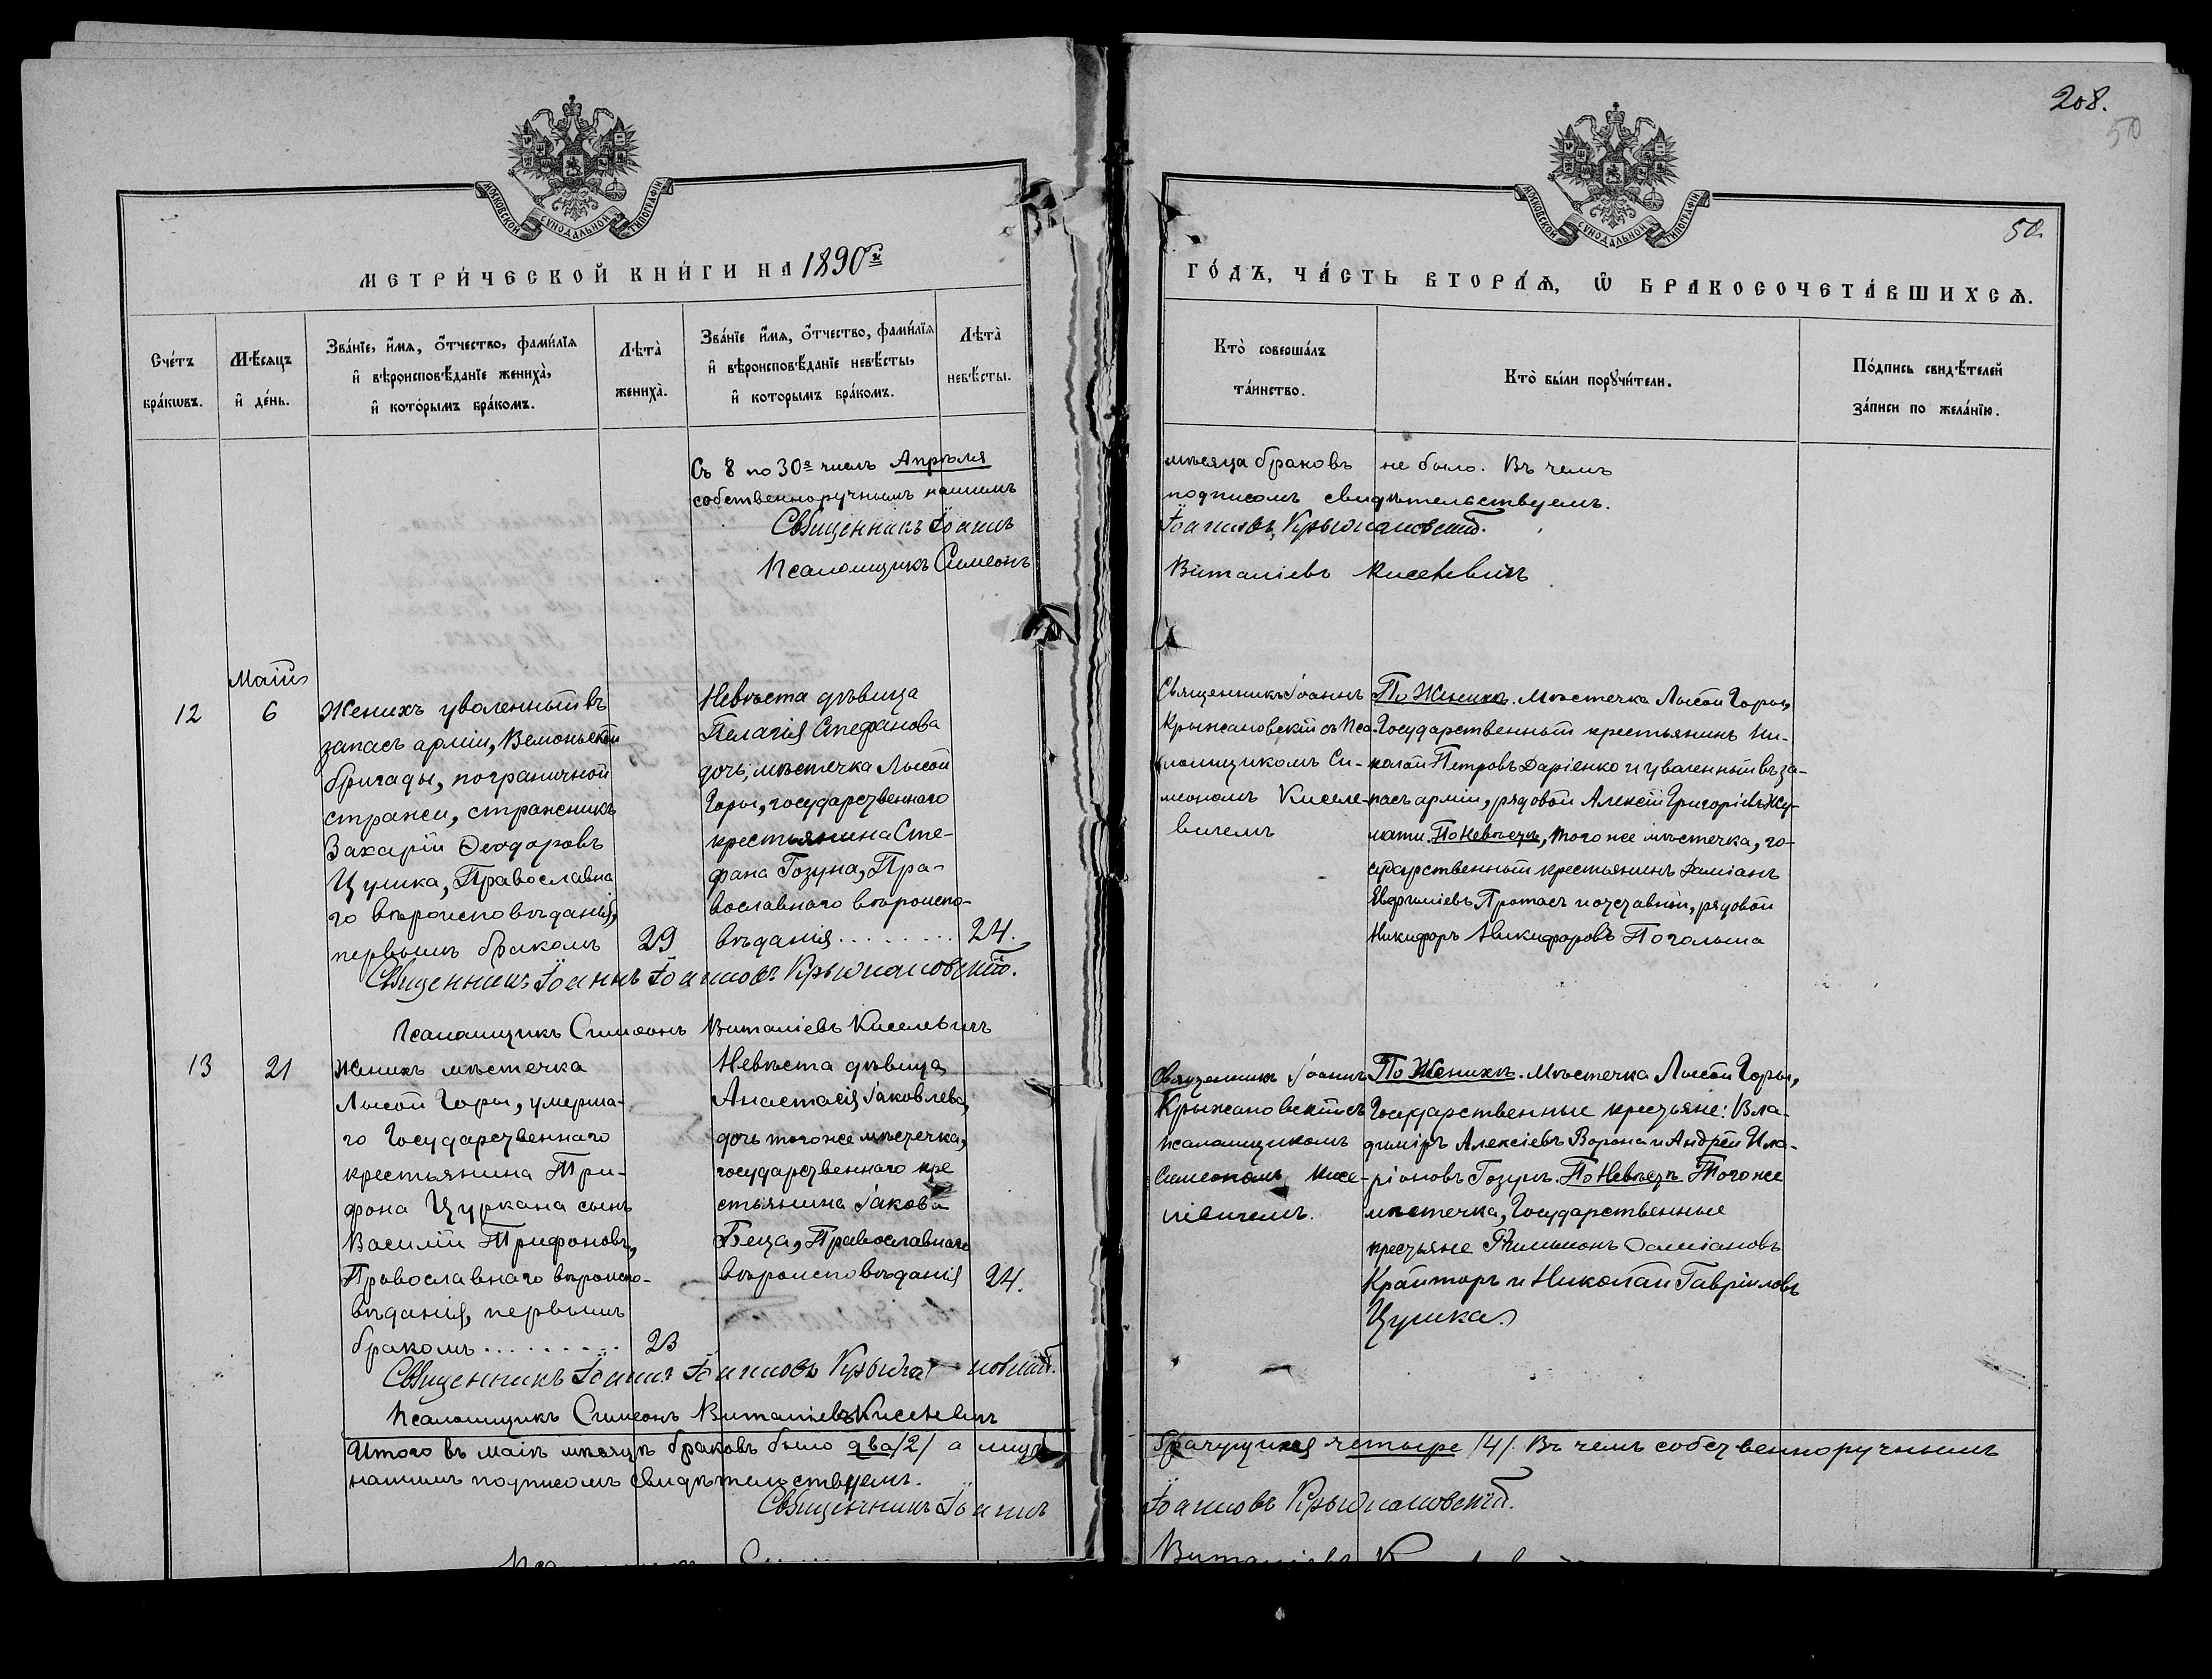 208.
50
МОСКОВСКОЙ СѴНОДАЛЬНОЙ ТИПОГРАФІИ
МЕТРИ́ЧЕСКОЙ КНИ́ГИ НА 1890й
Сче́тъ
бра́кѡвъ.
Мѣ́сяцъ
и҆ де́нь.
Зва́нїе, и҆́мя, о҆́тчество, фами́лїя
и҆ вѣроисповѣ́данїе жениха̀,
и҆ кото́рымъ бра́комъ.
Лѣта̀
жениха̀.
Зва́нїе и҆́мя, о҆́тчество, фами́лїя
и҆ вѣроисповѣ́данїе невѣ́сты,
и҆ которымъ бра́комъ.
Лѣта̀
невѣ́сты.
Съ 8 по 30е число Апрѣля
собственноручнымъ нашимъ
Священникъ Іоаннъ
Псаломщикъ Симеонъ
Маій
12
6
Женихъ уволенный въ
запасъ арміи,
бригады, пограничной
стражи, стражникъ
Захарій Ѳеодоровъ
Цушка, Православна
го вѣроисповѣданія,
первымъ бракомъ
29
Невѣста дѣвица
Пелагія Стефанова
дочь, мѣстечка Лысой
Горы, государственнаго
крестьянина Сте-
фана Гозуна, Пра-
вославнаго вѣроиспо-
вѣданія . . . . . . . .
24.
Священникъ Іоаннъ Іоанновъ Крыжановскій.
Псаломщикъ Симеонъ Виталіевъ Киселевичъ
13
21
Женихъ мѣстечка
Лысой Горы, умерша-
го Государственнаго
крестьянина Три-
фона Цуркана сынъ
Василій Трифоновъ,
Православнаго вѣроиспо-
вѣданія, первымъ
бракомъ . . . . . . . . .
23
Невѣста дѣвица
Анастасія Іаковлева,
дочь тогоже мѣстечка,
государственнаго кре
стьянина Іакова
Беца, Православнаго
вѣроисповѣданія
24.
Священникъ Іоаннъ Іоанновъ Крыжановскій.
Псаломщикъ Симеонъ Виталіевъ Киселевичъ
Итого въ маіѣ мѣсяцѣ браковъ было два /2/ а лицъ
нашимъ подписомъ свидѣтельствуемъ.
Священникъ Іоаннъ
50.
МОСКОВСКОЙ СѴНОДАЛЬНОЙ ТИПОГРАФІИ
ГО́ДЪ, ЧА́СТЬ ВТОРА́Ѧ, Ѽ БРАКОСОЧЕТА́ВШИХСѦ.
Кто̀ соверша́лъ
та́инство.
Кто̀ бы́ли порꙋчи́тели.
По́дпись свидѣ́телей
за́писи по жела́нїю.
мѣсяца браковъ не было. Въ чемъ
подписомъ свидѣтельствуемъ.
Іоанновъ Крыжановскій.
Виталіевъ Киселевичъ
Священникъ Іоаннъ
Крыжановскій съ Пса-
ломщикомъ Си-
меономъ Киселе-
вичемъ
По Женихѣ. Мѣстечка Лысой Горы,
Государственный крестьянинъ Ни-
колай Петровъ Даріенко и уволенный въ за-
пасъ арміи, рядовой Алексій Григоріевъ
По Невѣстѣ, того же мѣстечка, го-
сударственный крестьянинъ Даміанъ
Протасъ и отставной, рядовой
Никифоръ Никифоровъ
Священникъ Іоаннъ
Крыжановскій съ
псаломщикомъ
Симеономъ Кисе-
левичемъ.
По Женихѣ. Мѣстечка Лысой Горы,
Государственные крестьяне: Вла-
диміръ Алексіевъ Ворона и Андрей Ила-
ріоновъ Гозунъ. По Невѣстѣ Того же
мѣстечка, Государственные
крестьяне Филимонъ Даміановъ
Крайторъ и Николай Гавріиловъ
Цушка.
брачущихся четыре /4/. Въ чемъ собственноручнымъ
Іоанновъ Крыжановскій.